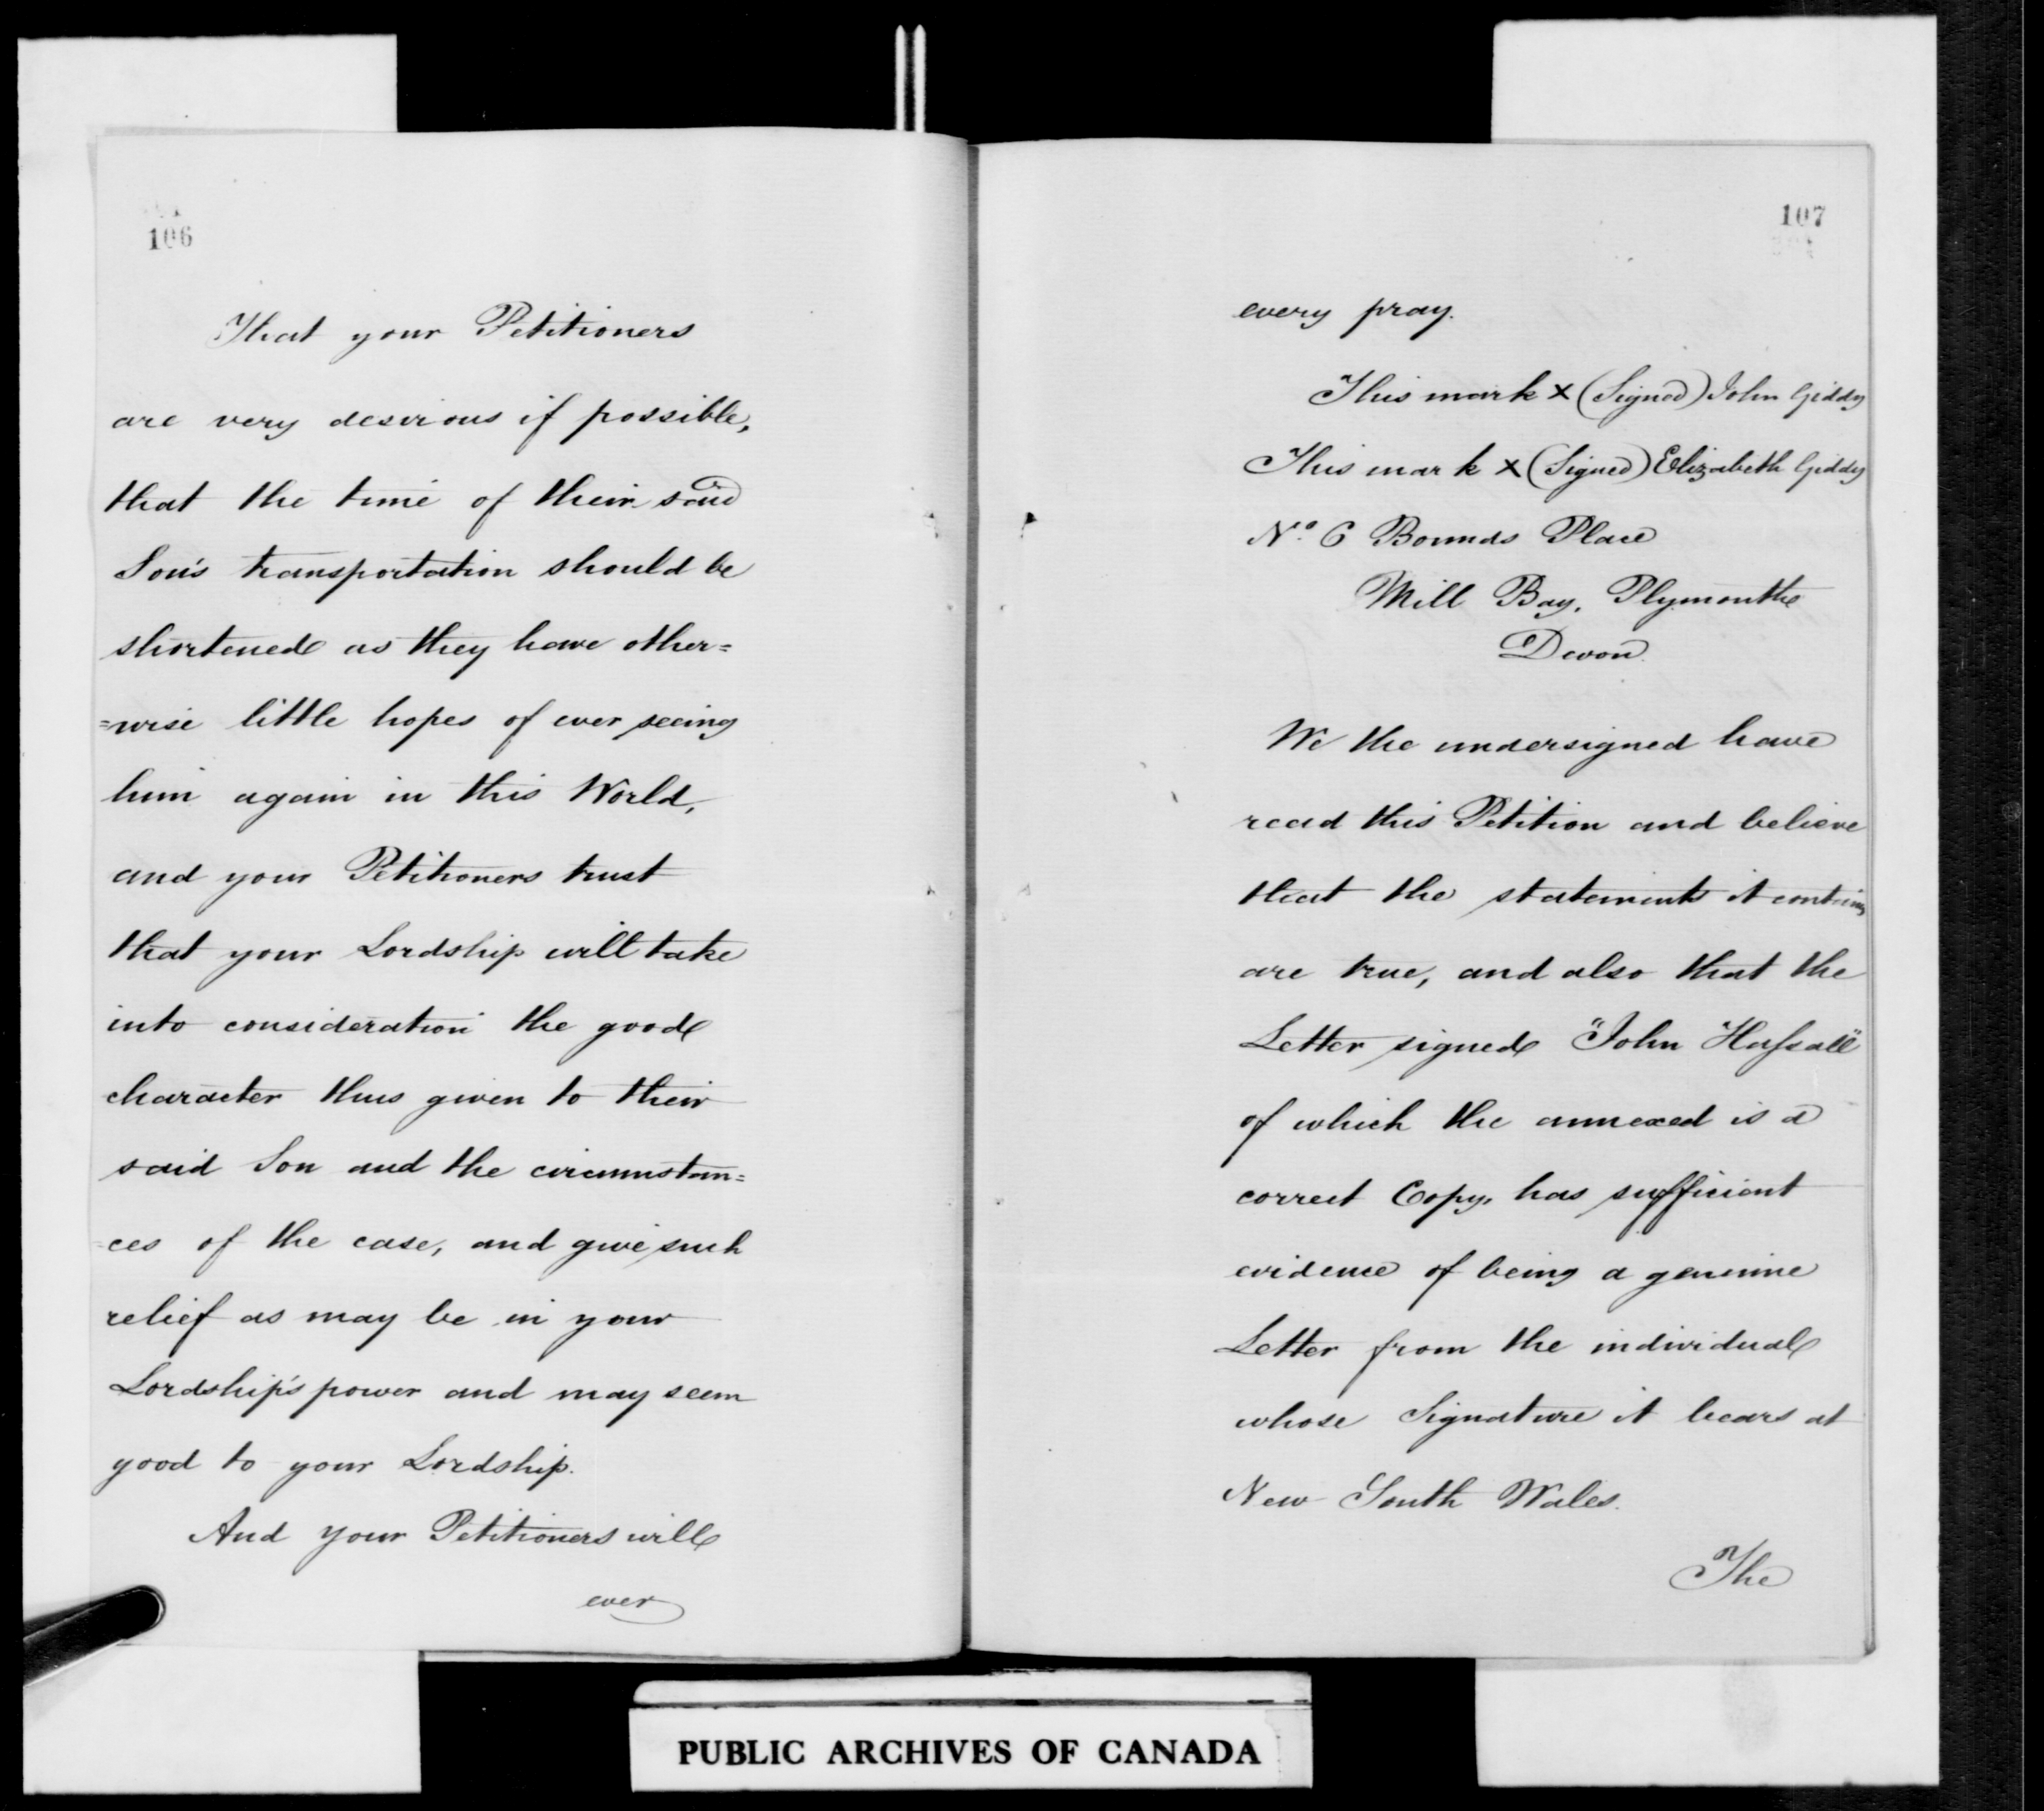 106
That your Petitioners
are very desirous if possible,
that the time of their said
Son's transportation should be
shortened as they have other=
=wise little hopes of ever seeing
him again in this World,
and your Petitioners trust
that your Lordship will take
into consideration the good
character thus given to their
said Son and the circumstan=
=ces of the case, and give such
relief as may be in your
Lordship's power and may seem
good to your Lordship.
And your Petitioners will
ever
107
every pray.
This mark X (Signed) John Giddy
This mark X (Signed) Elizabeth Giddy
No. 6 Bounds Place
Mill Bay, Plymouth
Devon.
We the undersigned have
read this Petition and believe
that the statements it contains
are true, and also that the
Letter signed "John Hassall"
of which the annexed is a
correct Copy, has sufficient
evidence of being a genuine
Letter from the individual
whose Signature it bears at
New South Wales.
The
PUBLIC ARCHIVES OF CANADA